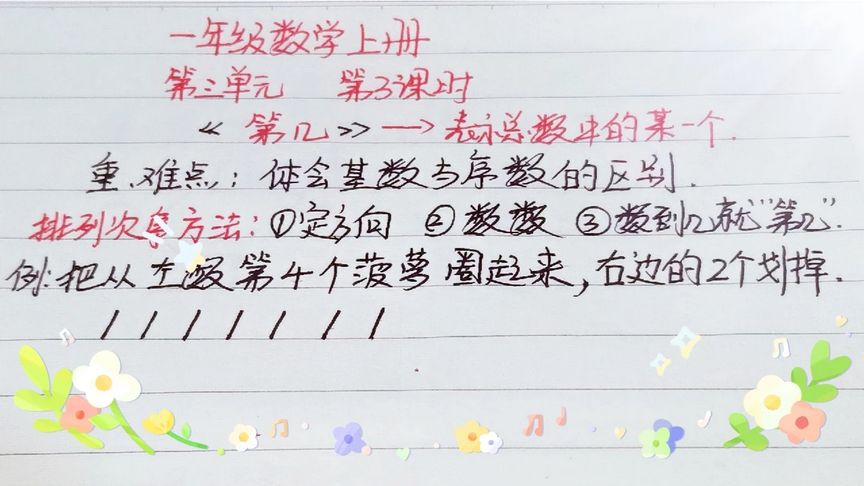 一年级数学上册
第三单元 第3课时
《第几》→表示总数中的某一个.
重、难点:体会基数与序数的区别.
排列次序方法:①定方向 ②数数 ③数到几就"第几".
例:把从左数第4个菠萝圈起来,右边的2个划掉.
/ / / / / / /